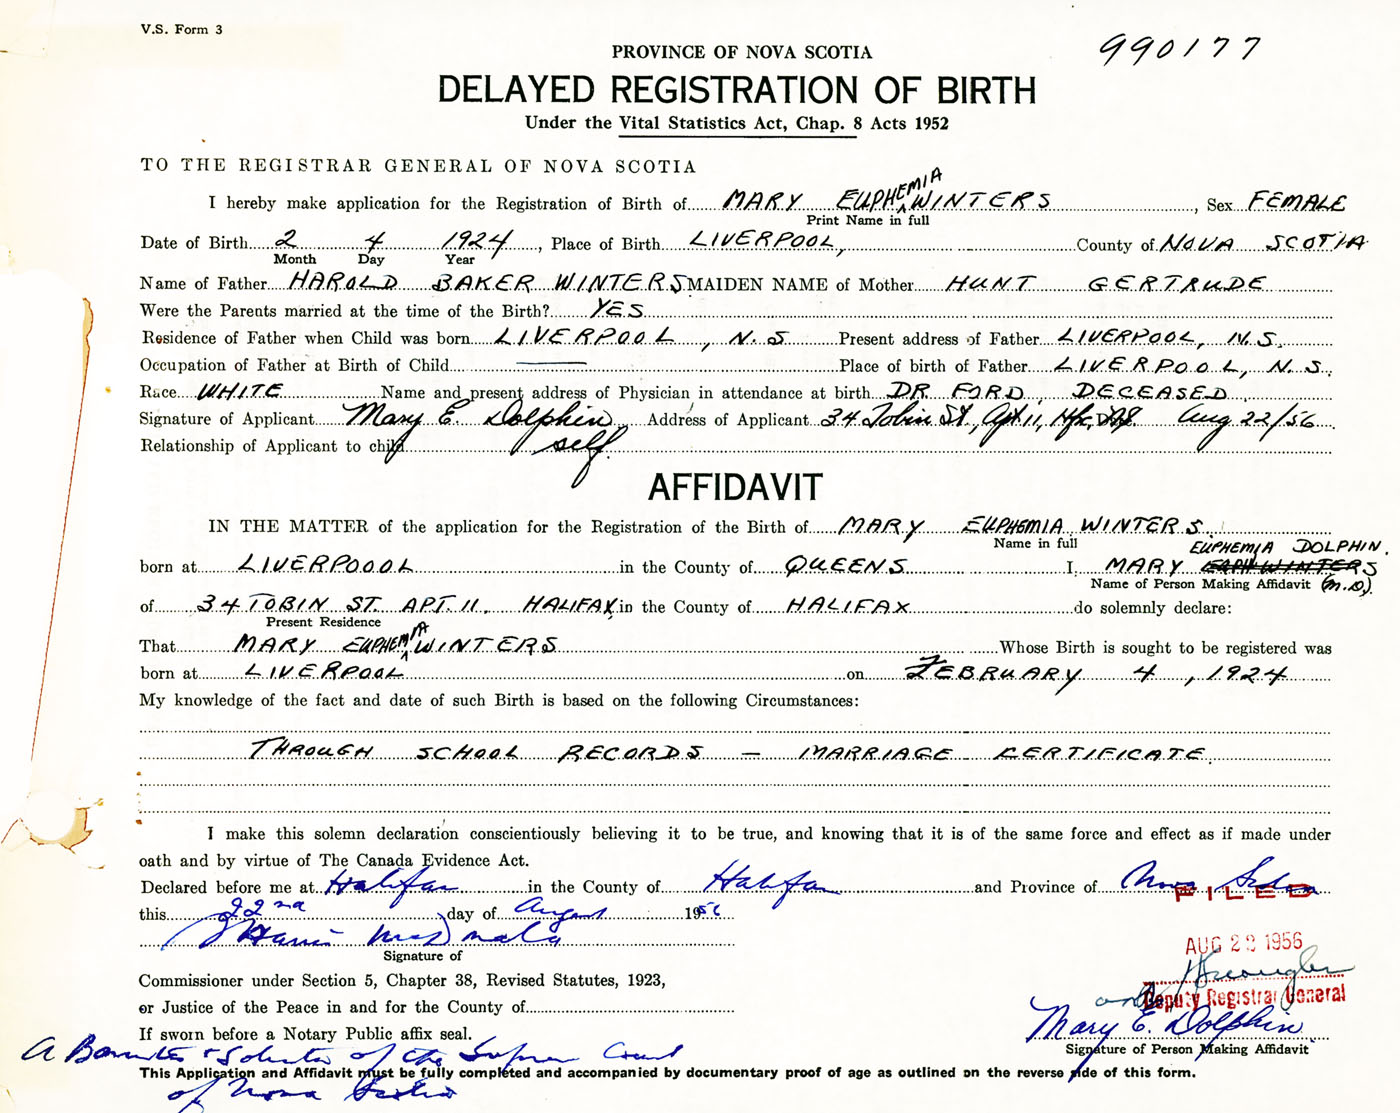 V.S. Form 3
990177
PROVINCE OF NOVA SCOTIA
DELAYED REGISTRATION OF BIRTH
Under the Vital Statistics Act, Chap. 8 Acts 1952
TO THE REGISTRAR GENERAL OF NOVA SCOTIA
I hereby make application for the Registration of Birth of MARY EUPHEMIA WINTERS, Sex FEMALE
Print Name in full
Date of Birth 2 4 1924, Place of Birth LIVERPOOL, County of NOVA SCOTIA
Month Day Year
Name of Father HAROLD BAKER WINTERS MAIDEN NAME of Mother HUNT GERTRUDE
Were the Parents married at the time of the Birth? YES
Residence of Father when Child was born LIVERPOOL, N.S. Present address of Father LIVERPOOL, N.S.
Occupation of Father at Birth of Child —— Place of birth of Father LIVERPOOL, N.S.
Race WHITE Name and present address of Physician in attendance at birth DR. FORD DECEASED
Signature of Applicant Mary E. Dolphin, Address of Applicant 34 Tobin St., Apt 11, Hfx, N.S. Aug 22/56
Relationship of Applicant to child self
AFFIDAVIT
IN THE MATTER of the application for the Registration of the Birth of MARY EUPHEMIA WINTERS.
Name in full
EUPHEMIA DOLPHIN.
born at LIVERPOOOL in the County of QUEENS I, MARY WINTERS
Name of Person Making Affidavit (M.D.)
of 34 TOBIN ST. APT. 11. HALIFAX, in the County of HALIFAX do solemnly declare:
Present Residence
That MARY EUPHEMIA WINTERS Whose Birth is sought to be registered was
born at LIVERPOOL on FEBRUARY 4, 1924
My knowledge of the fact and date of such Birth is based on the following Circumstances:
THROUGH SCHOOL RECORDS — MARRIAGE CERTIFICATE.
I make this solemn declaration conscientiously believing it to be true, and knowing that it is of the same force and effect as if made under
oath and by virtue of The Canada Evidence Act.
Declared before me at Halifax in the County of Halifax and Province of Nova Scotia
FILED
this 22nd day of August 1956
AUG 22 1956
Signature of
Commissioner under Section 5, Chapter 38, Revised Statutes, 1923,
Deputy Registrar General
or Justice of the Peace in and for the County of
Mary E. Dolphin.
If sworn before a Notary Public affix seal.
Signature of Person Making Affidavit
A Barrister & Solicitor of the Supreme Court
This Application and Affidavit must be fully completed and accompanied by documentary proof of age as outlined on the reverse side of this form.
of Nova Scotia